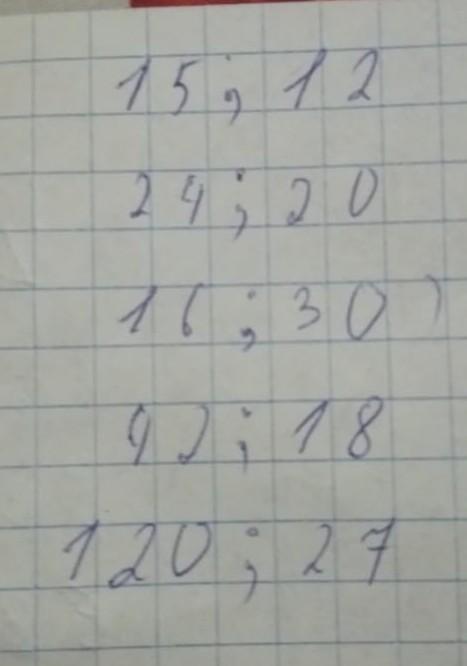 15; 12
24; 20
16; 30)
42; 18
120; 27